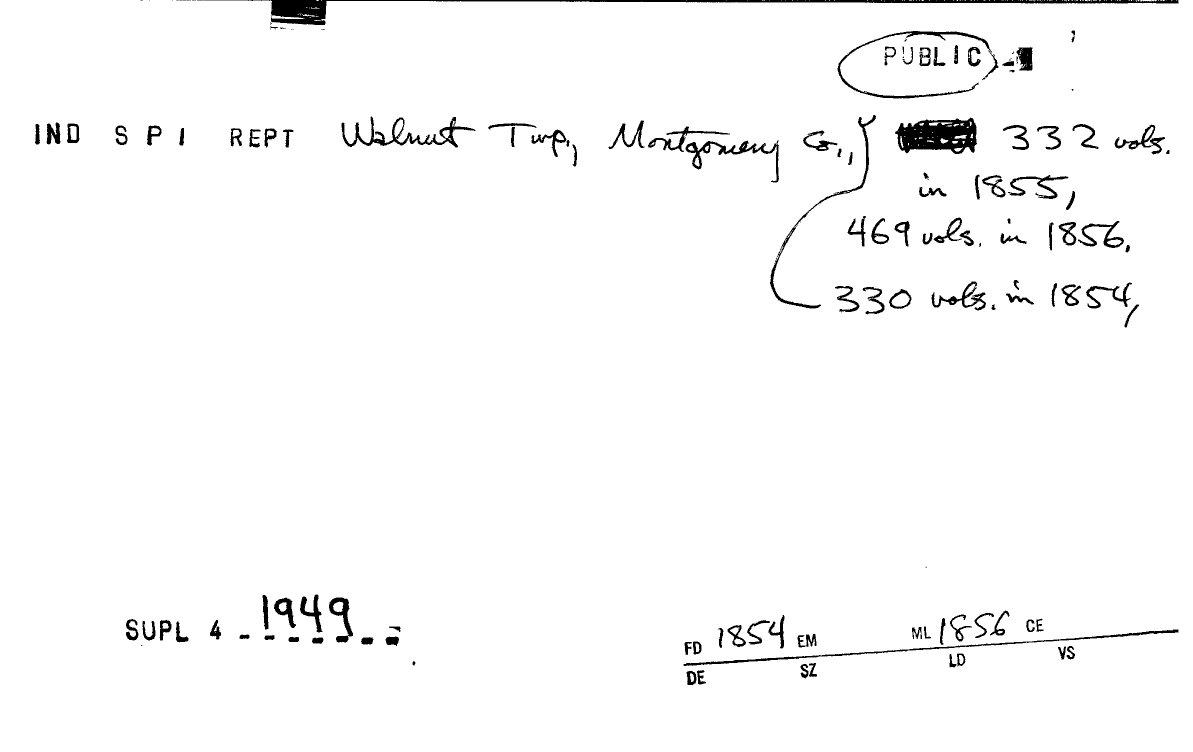 PUBLIC
IND S P I REPT Walnut Twp., Montgomery Co., 332 vols.
in 1855,
469 vols. in 1856.
330 vols. in 1854,
SUPL 4 1949
FD 1854 EM ML 1856 CE
DE SZ LD VS